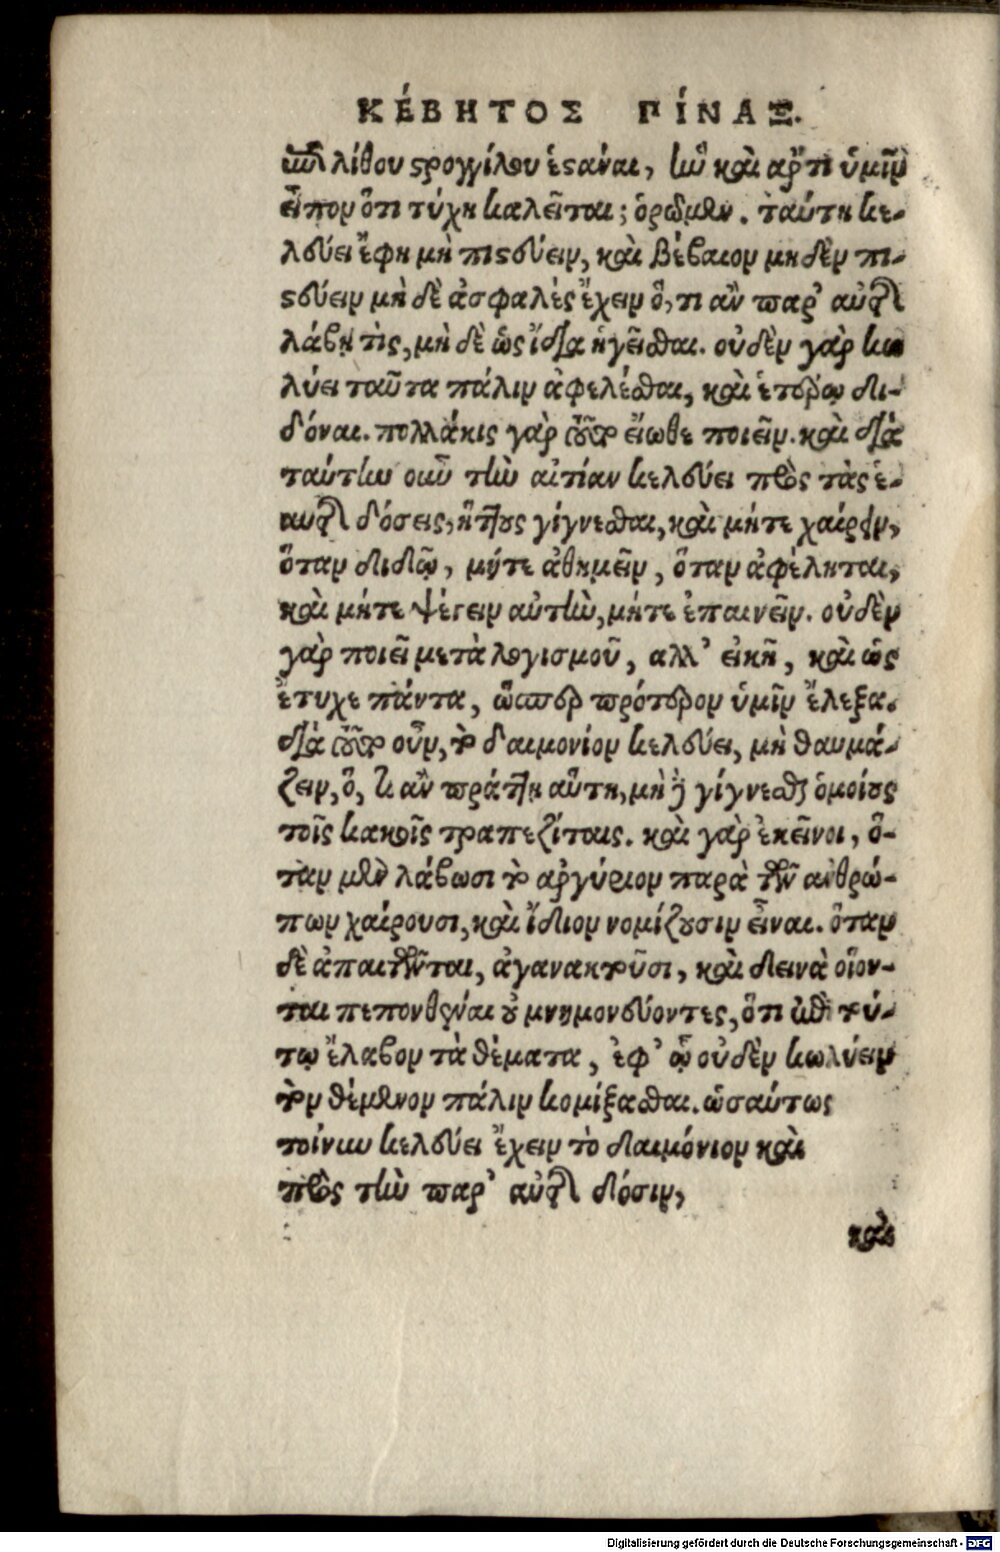 ΚΈΒΗΤΟΣ ΠΊΝΑΞ.
ἐπὶ λίθου στρογγίλου ἑστάναι, ἣν καὶ ἄρτι ὑμῖν
εἶπον ὅτι τύχη καλεῖται; ὁρῶμεν. ταύτῃ κε-
λεύει ἔφη μὴ πιστεύειν, καὶ βέβαιον μηδὲν πι-
στεύειν μὴ δὲ ἀσφαλὲς ἔχειν ὅ,τι ἂν παρ' αὐτῆς
λάβῃ τὶς, μὴ δὲ ὡς ἴδια ἡγεῖσθαι. οὐδὲν γὰρ κω
λύει ταῦτα πάλιν ἀφελέσθαι, καὶ ἑτέρῳ δι-
δόναι. πολλάκις γὰρ τοῦτο εἴωθε ποιεῖν. καὶ διὰ
ταύτην οὖν τὴν αἰτίαν κελεύει πρὸς τὰς ἑ-
αυτῆς δόσεις, ἥττους γίγνεσθαι, καὶ μήτε χαίρειν,
ὅταν διδῷ, μήτε ἀθυμεῖν, ὅταν ἀφέληται,
καὶ μήτε ψέγειν αὐτὴν, μήτε ἐπαινεῖν. οὐδὲν
γὰρ ποιεῖ μετὰ λογισμοῦ, αλλ' εἰκῆ, καὶ ὡς
ἔτυχε πάντα, ὥσπερ πρότερον ὑμῖν ἔλεξα.
διὰ τοῦτο οὖν, τὸ δαιμονίον κελεύει, μὴ θαυμά-
ζειν, ὅ, τι ἂν πράττῃ αὕτη, μὴ δὲ γίγνεσθαι ὁμοίους
τοῖς κακοῖς τραπεζίταις. καὶ γὰρ ἐκεῖνοι, ὅ-
ταν μὲν λάβωσι τὸ ἀργύριον παρὰ τῶν ἀνθρώ-
πων χαίρουσι, καὶ ἴδιον νομίζουσιν εἶναι. ὅταν
δὲ ἀπαιτῶνται, ἀγανακτοῦσι, καὶ δεινὰ οἴον-
ται πεπονθέναι οὐ μνημονεύοντες, ὅτι ἐπὶ τού-
τῳ ἔλαβον τὰ θέματα, ἐφ' ᾧ οὐδὲν κωλύειν
τὸν θέμενον πάλιν κομίξασθαι. ὡσαύτως
τοίνυν κελεύει ἔχειν τὸ δαιμόνιον καὶ
πρὸς τὴν παρ' αὐτῆς δόσιν,
καὶ
Digitalisierung gefördert durch die Deutsche Forschungsgemeinschaft - DFG